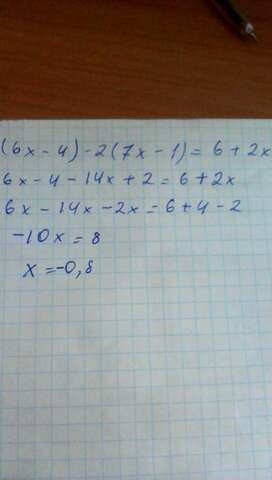 (6x - 4) - 2(7x - 1) = 6 + 2x
6x - 4 - 14x + 2 = 6 + 2x
6x - 14x - 2x = 6 + 4 - 2
-10x = 8
x = -0,8